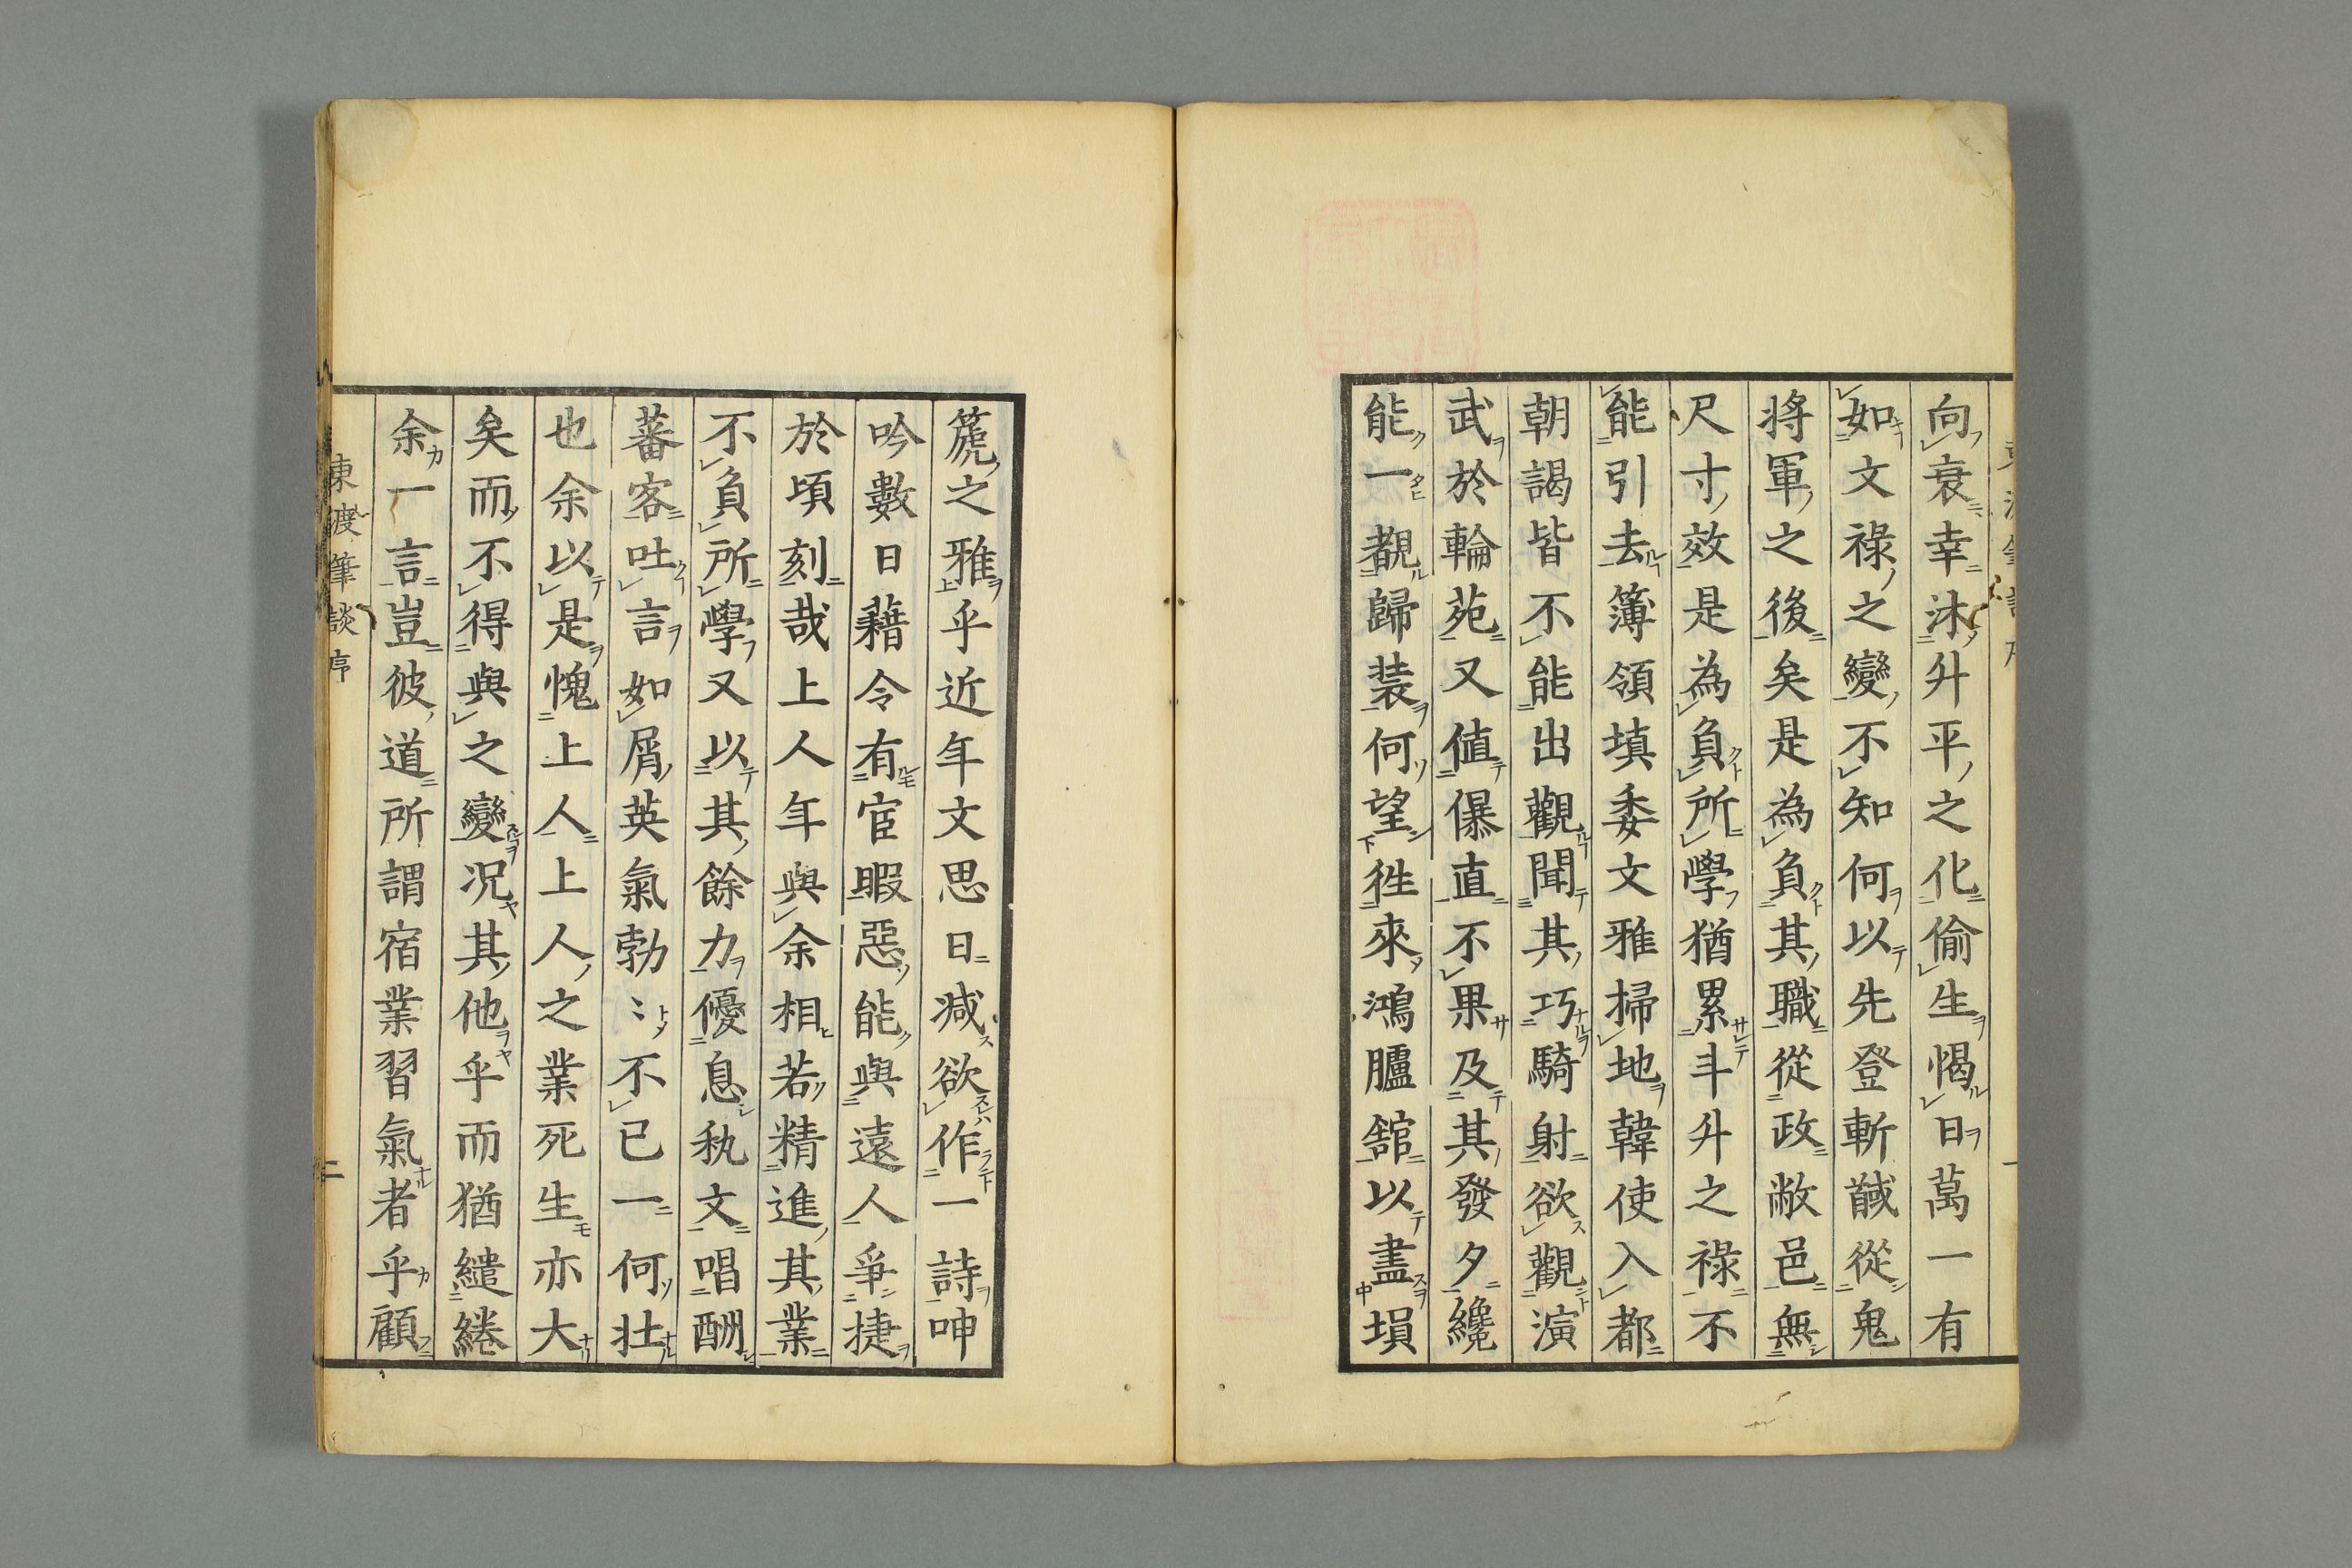 向衰幸沐升平之化偷生愒日萬一有
如文祿之變不知何以先登斬馘從鬼
將軍之後矣是為負其職從政敝邑無
尺寸效是為負所學猶累斗升之祿不
能引去簿領填委文雅掃地韓使入都
朝謁皆不能出觀聞其巧騎射欲觀演
武於輪苑又值儤直不果及其發夕纔
能一覩歸装何望徃來鴻臚舘以盡塤
篪之雅乎近年文思日减欲作一詩呻
吟數日藉令有宦暇惡能與遠人爭捷
於頃刻哉上人年與余相若精進其業
不負所學又以其餘力優息秇文唱酬
蕃客吐言如屑英氣勃〻不已一何壮
也余以是愧上人上人之業死生亦大
矣而不得與之變况其他乎而猶繾綣
余一言豈彼道所謂宿業習氣者乎顧
東渡筆談序
二